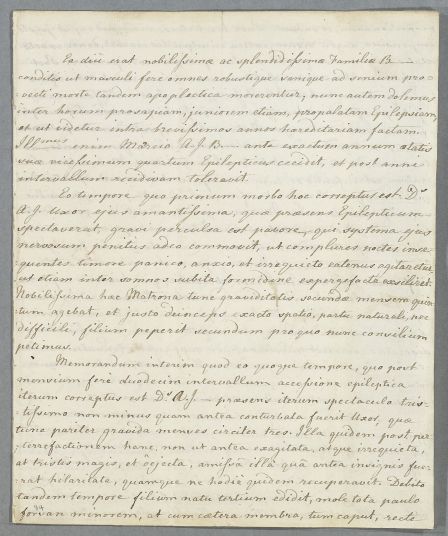 Ea diu erat nobilissimæ ac splendidissimæ Familiæ B—
conditio ut masculi fere omnes robustique senique ad senium pro-
vecti morte tandem apoplectica morerentur; nunc autem dolemus
inter horum prosapiam, juniorem etiam, propalatam Epilepsiam,
et ut videtur intra brevissimos annos hereditariam factam.
Illmus enim Marcio A. J. B— ante exactum annum ætatis
suæ vicesimum quartum Epilepticus cecidit, et post anni
intervallum recidivam toleravit.
Eo tempore quo primum morbo hoc correptus est Ds
A. J. Uxor ejus amantissima, quæ præsens Epilepticum
spectaverat, gravi perculsa est pavore, qui systema ejus
nervosum penitus adeo commovit, ut complures noctes inse-
quentes timore panico, anxio, et irrequieto eatenus agitaretur,
ut etiam inter somnos subita formidine expergefacta exsiliret.
Nobilissima hæc Matrona tunc graviditatis secundæ mensem quar-
tum agebat, et justo deinceps exacto spatio, partu naturali, nec
difficili, filium peperit secundum pro quo nunc consilium
petimus.
Memorandum interim quod eo quoque tempore, quo post
mensium fere duodecim intervallum accessione epileptica
iterum correptus est Ds A. J— præsens iterum spectaculo tris-
tissimo non minus quam antea conturbata fuerit Uxor, quæ
tunc pariter gravida menses circiter tres. Illa quidem post per-
terrefactionem hanc, non ut antea exagitata, atque irrequieta,
at tristis magis, et dejecta, amissa illa qua antea insignis fue-
rat hilaritate, quamque ne hodie quidem recuperavit. Debito
tandem tempore filium natu tertium edidit, mole tota paulo
forsan minorem, at cum cætera membra, tum caput, recte